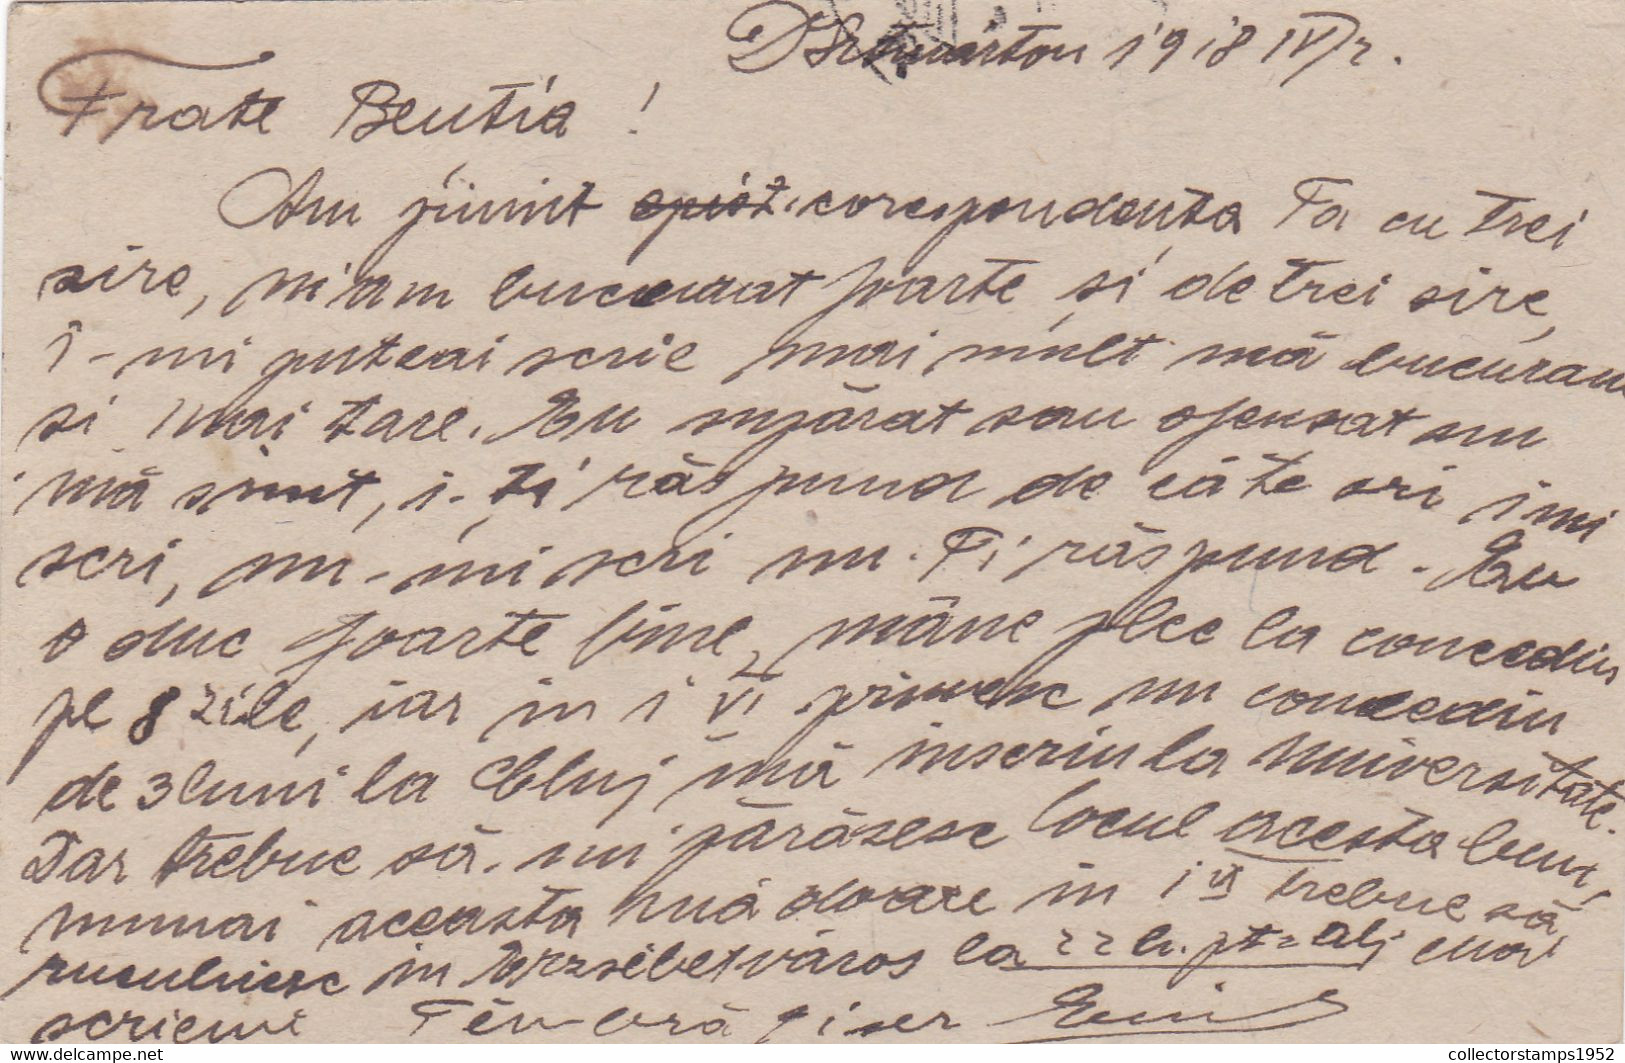 DSztmárton 1918 IV/2.
Frate Bentia!
Am primit corespondenta Ta cu trei
sire, m'am bucurat foarte și de trei sire,
î-mi puteai scrie mai mult mă bucuram
si mai tare. Eu supărat sau ofensat nu
mă simt, i-ți răspund de câte ori imi
scri, nu-mi scri nu-Ti răspund. Eu
o duc foarte bine, mâne plec la concediu
pe 8 zile, iar in 1 VI primesc un concediu
de 3 luni la Cluj mă inscriu la Universitate.
Dar trebue să-mi părăsesc locul acesta bun,
numai aceasta mă doare in 1 VI trebue să
ruculuesc in Erzsébetváros la 22 h. pt. alj mai
scriemi Têu-bră
collectorstamps1952